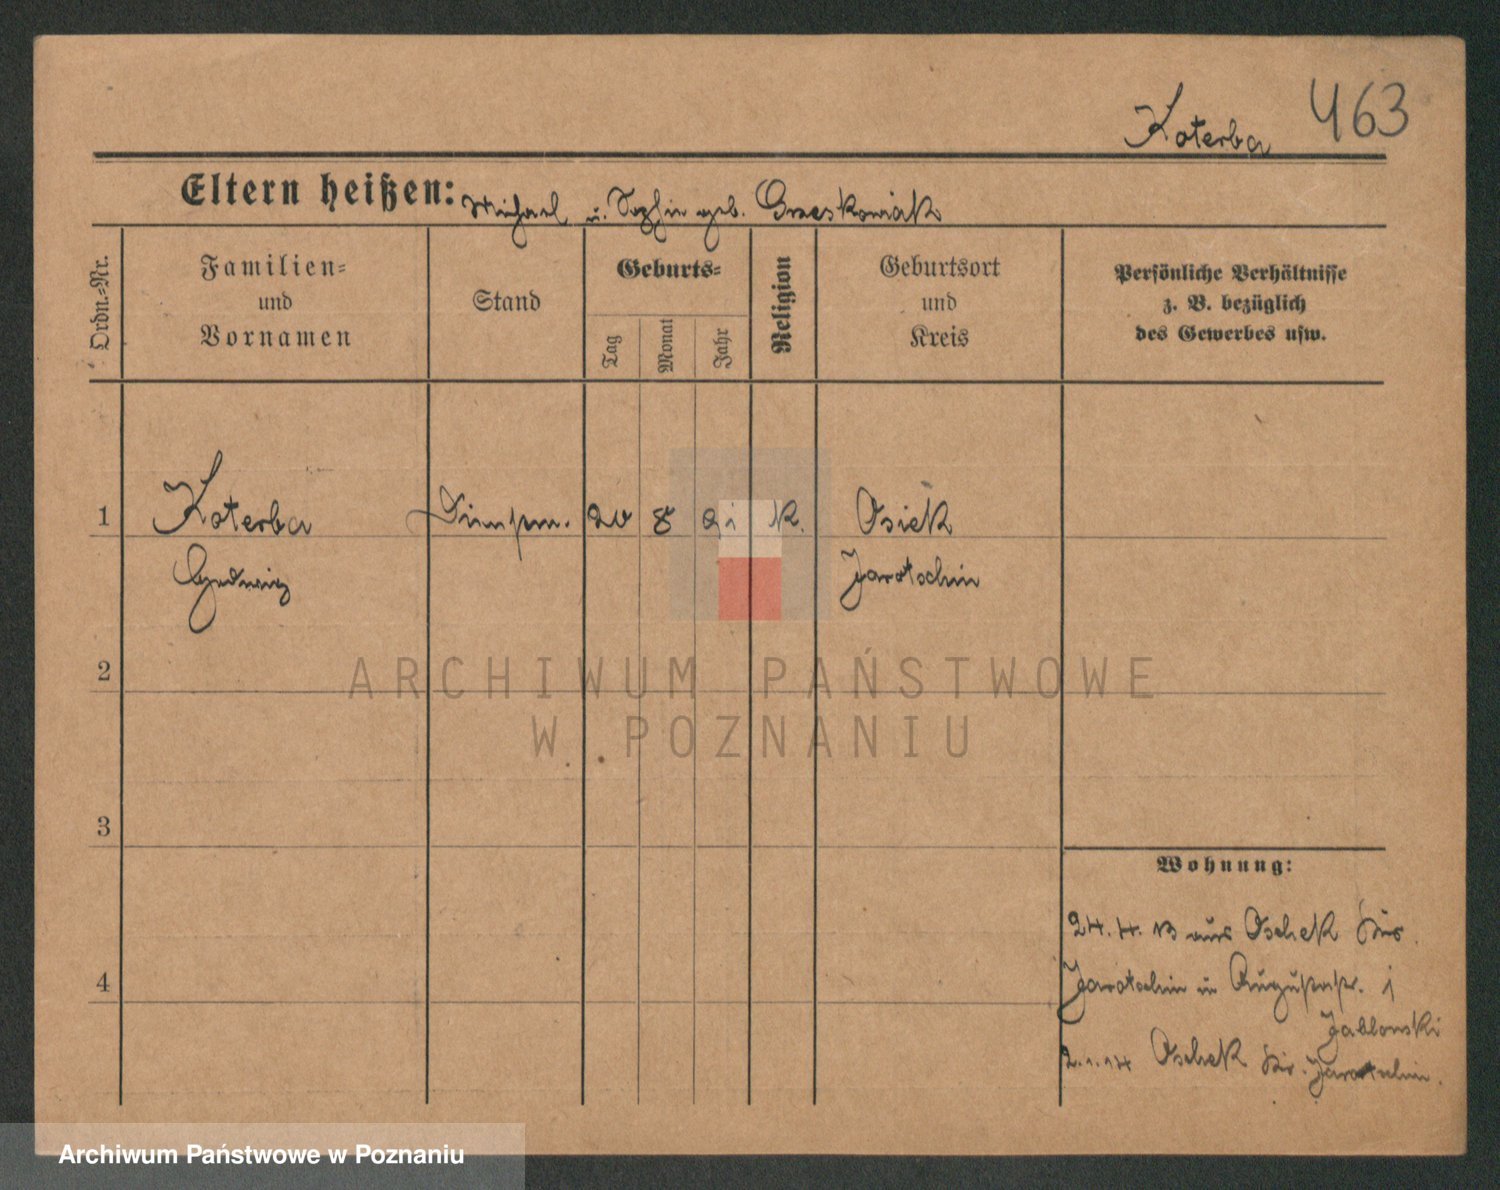 Koterba 463
Eltern heißen: Michael u. Sophie geb.
Ordn.-Nr.
Familien-
und
Vornamen
Stand
Geburts-
Tag
Monat
Jahr
Religion
Geburtsort
und
Kreis
Persönliche Verhältnisse
z. B. bezüglich
des Gewerbes usw.
1 Koterba 20 8 91 k. Osiek
Hedwig Jarotschin
2
3
4
Wohnung:
24.4.13 aus Oschek Kr.
Jarotschin n Augustastr. 1
Jablonski
2.1.14 Oschek Kr. Jarotschin.
ARCHIWUM PAŃSTWOWE
W POZNANIU
Archiwum Państwowe w Poznaniu